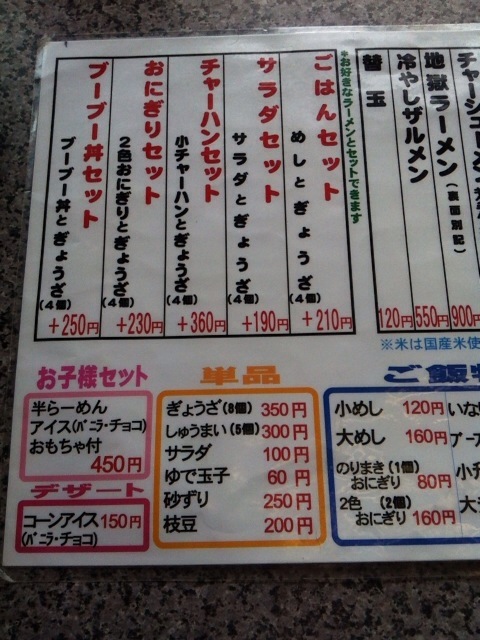 チャーシューメン
900円
地獄ラーメン(裏面別記)
550円
冷やしザルメン
120円
替玉
*お好きなラーメンとセットできます
ごはんセット
めしとぎょうざ(4個)
+210円
サラダセット
サラダとぎょうざ(4個)
+190円
チャーハンセット
小チャーハンとぎょうざ(4個)
+360円
おにぎりセット
2色おにぎりとぎょうざ(4個)
+230円
ブーブー丼セット
ブーブー丼とぎょうざ(4個)
+250円
※米は国産米使
お子様セット
半らーめん
アイス(バニラ・チョコ)
おもちゃ付
450円
デザート
コーンアイス 150円
(バニラ・チョコ)
単品
ぎょうざ(8個) 350円
しゅうまい(5個) 300円
サラダ 100円
ゆで玉子 60円
砂ずり 250円
枝豆 200円
ご飯物
小めし 120円
大めし 160円
のりまき(1個)
おにぎり 80円
2色 (2個)
おにぎり 160円
いな
ブー
小チ
大